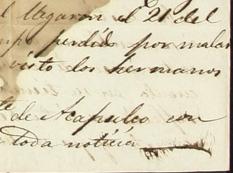 llegaron el 21 del
perdido por malas
visto dos hermanos
te de Acapulco con
toda noticia